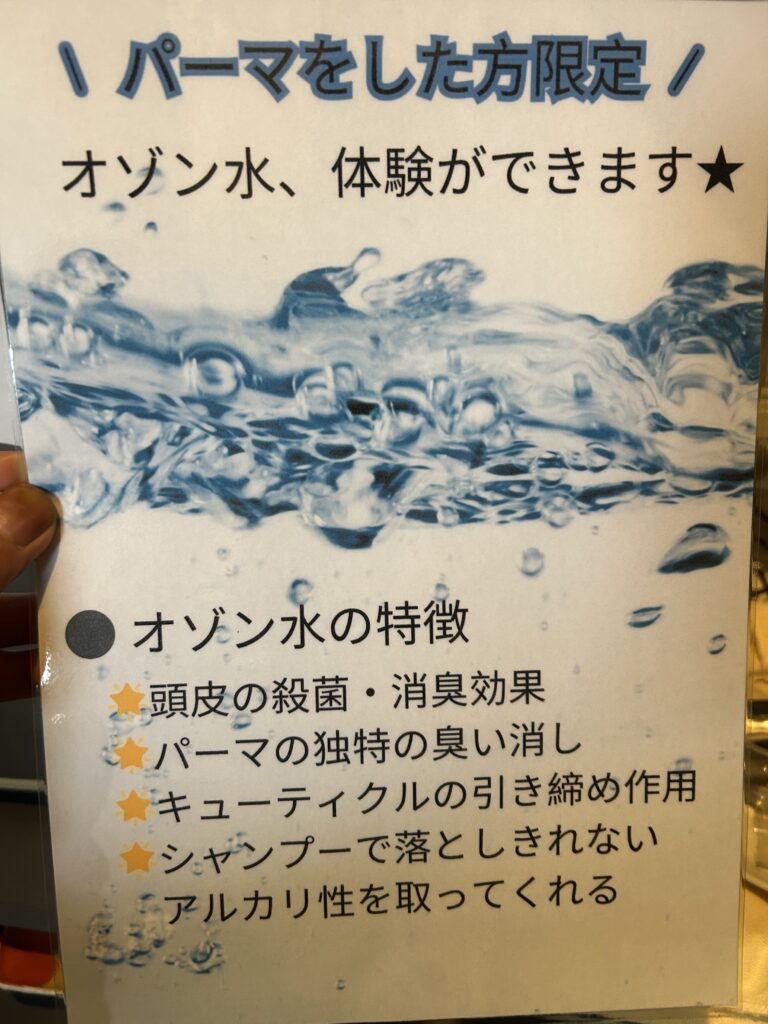 \ パーマをした方限定 /
オゾン水、体験ができます★
● オゾン水の特徴
⭐頭皮の殺菌・消臭効果
⭐パーマの独特の臭い消し
⭐キューティクルの引き締め作用
⭐シャンプーで落としきれない
アルカリ性を取ってくれる